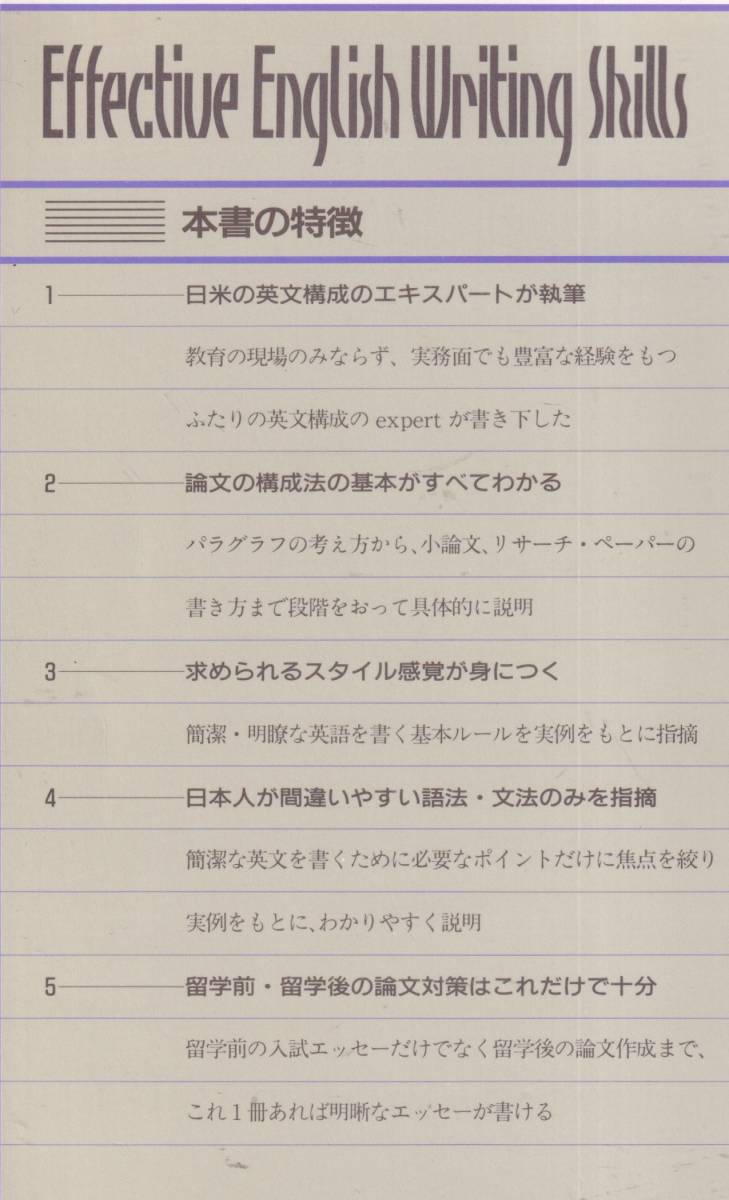 Effective English Writing Skills
本書の特徴
1 日米の英文構成のエキスパートが執筆
教育の現場のみならず、実務面でも豊富な経験をもつ
ふたりの英文構成の expert が書き下した
2 論文の構成法の基本がすべてわかる
パラグラフの考え方から、小論文、リサーチ・ペーパーの
書き方まで段階をおって具体的に説明
3 求められるスタイル感覚が身につく
簡潔・明瞭な英語を書く基本ルールを実例をもとに指摘
4 日本人が間違いやすい語法・文法のみを指摘
簡潔な英文を書くために必要なポイントだけに焦点を絞り
実例をもとに、わかりやすく説明
5 留学前・留学後の論文対策はこれだけで十分
留学前の入試エッセーだけでなく留学後の論文作成まで、
これ1冊あれば明晰なエッセーが書ける